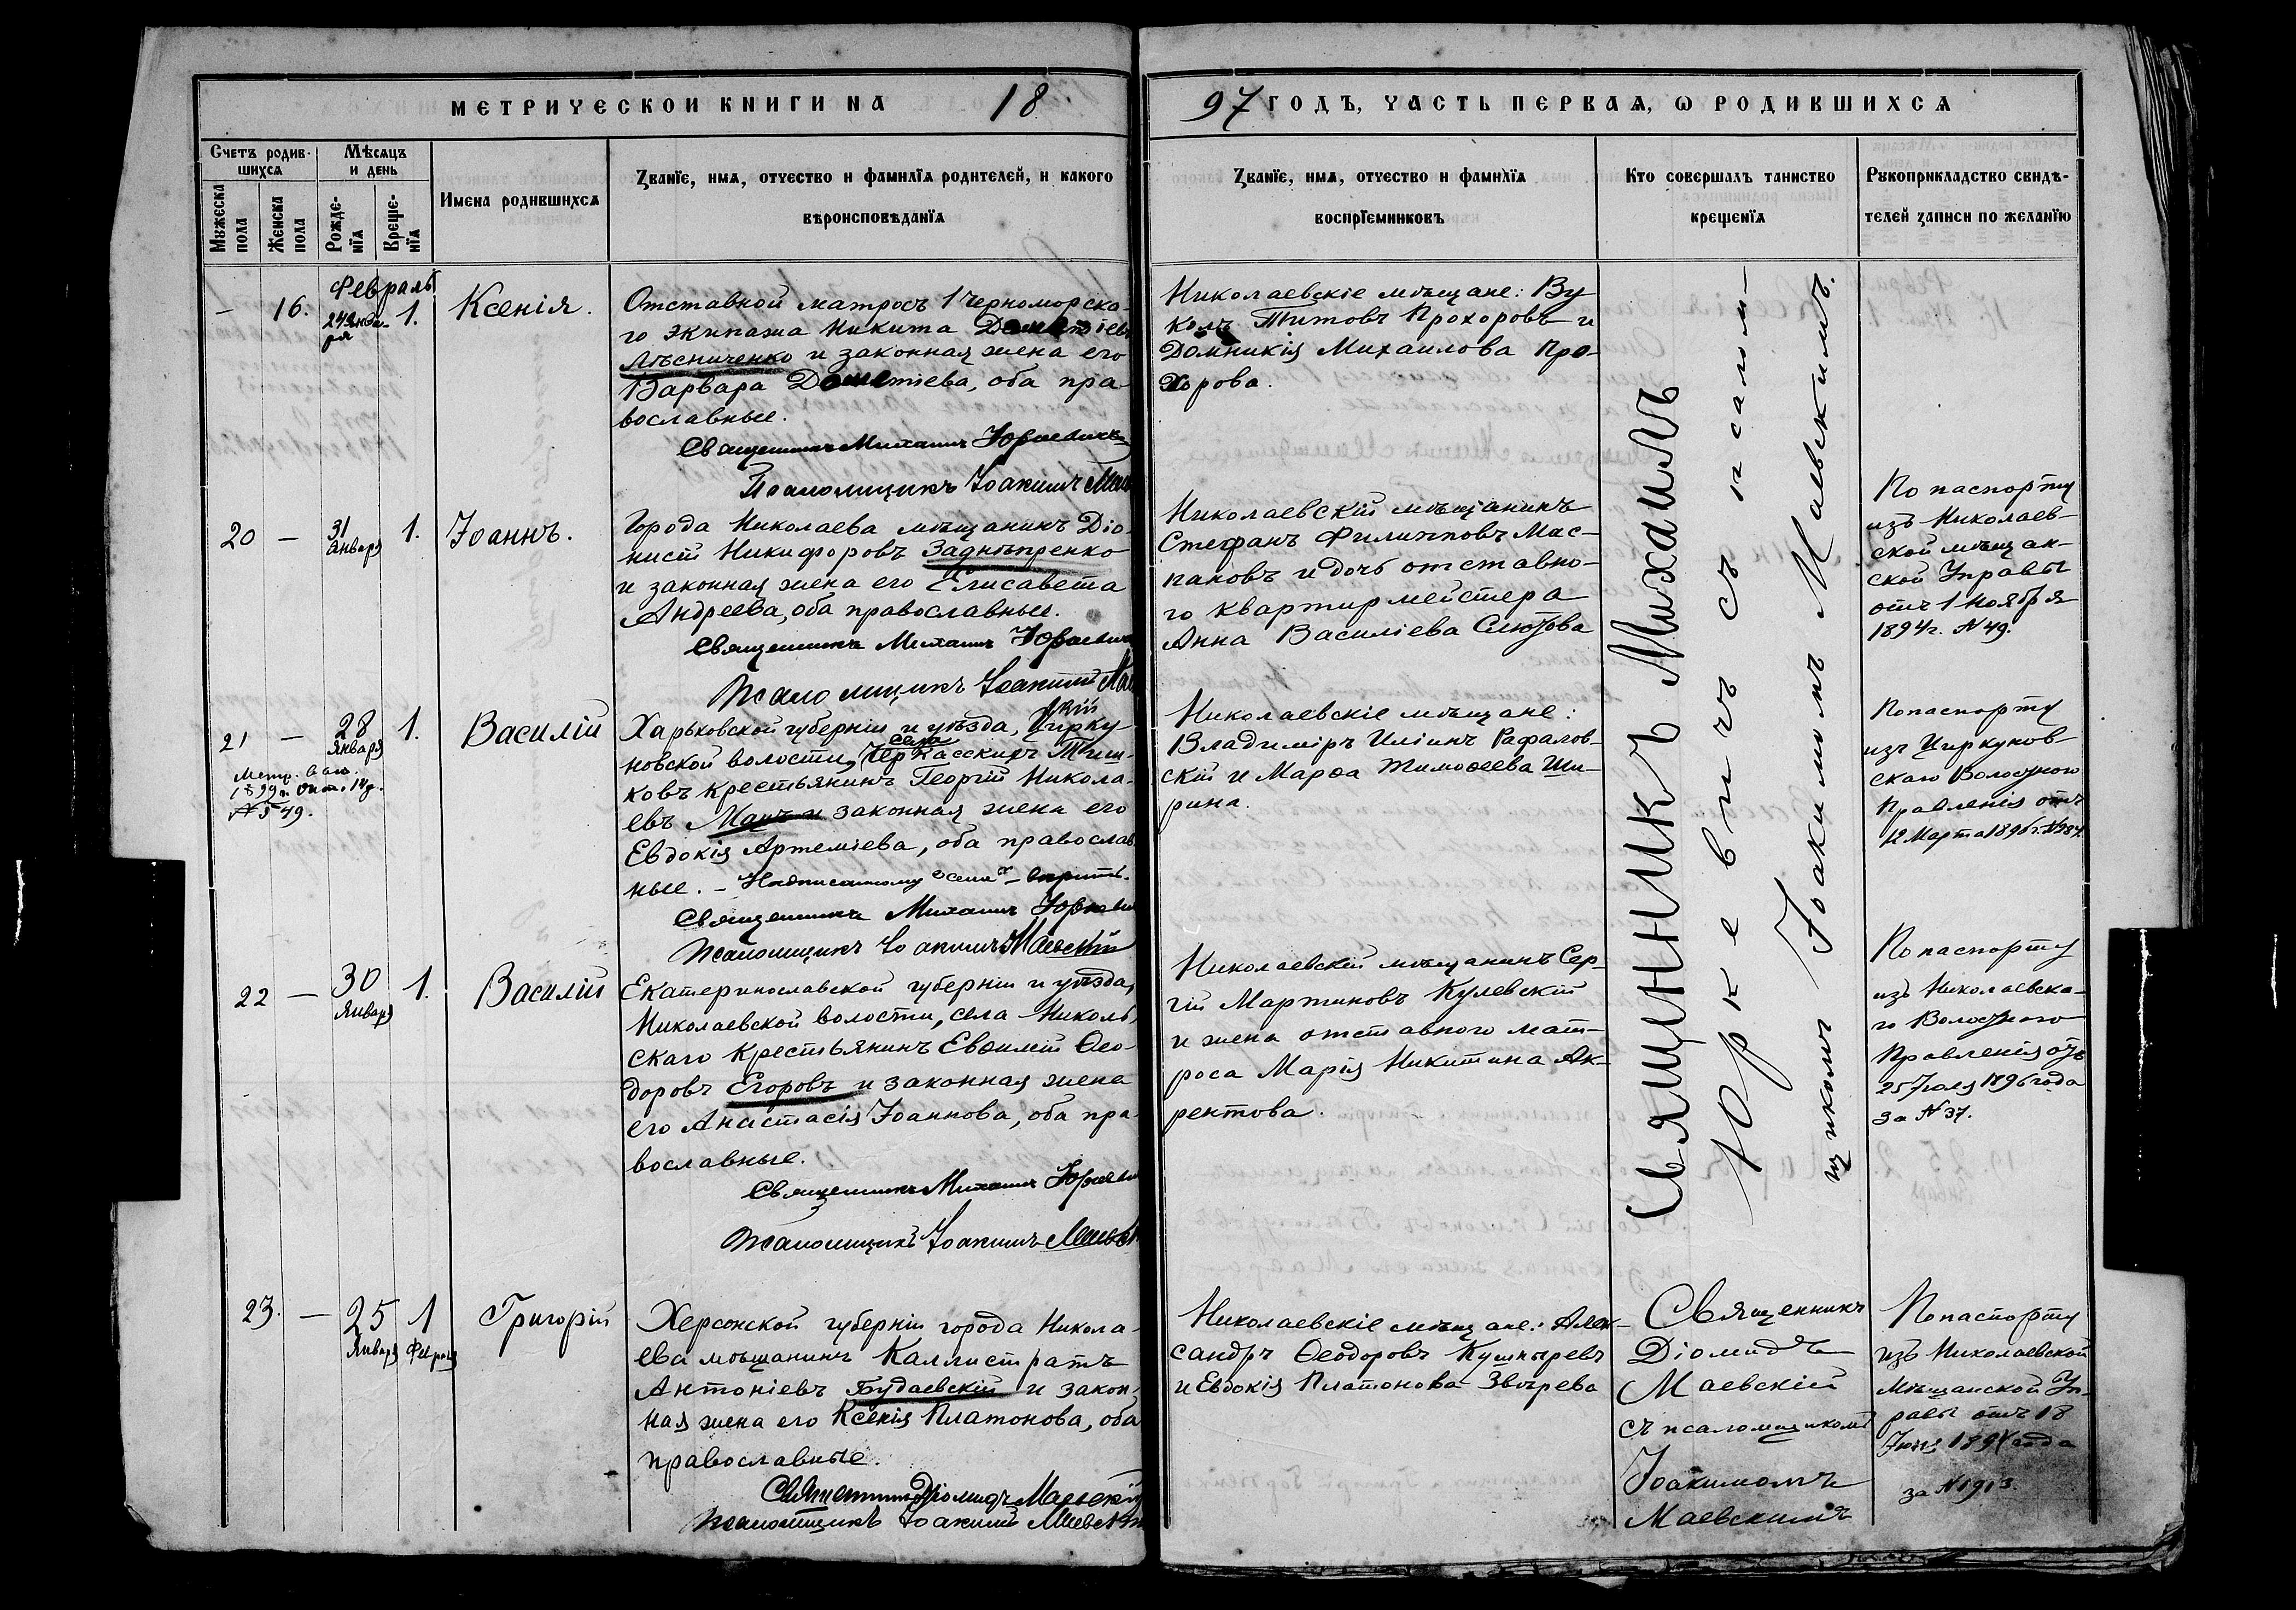 МЕТРИЧЕСКОЙ КНИГИ НА 18
97 ГОДЪ, ЧАСТЬ ПЕРВАЯ, Ѡ РОДИВШИХСЯ
Счетъ родив-
шихся
Мѣсяцъ
и день
Мужеска
пола
Женска
пола
Рожде-
нїя
Креще-
нїя
Имена родившихся
Званїе, имя, отчество и фамилїя родителей, и какого
вѣроисповѣданїя
Званїе, имя, отчество и фамилїя
воспрїемниковъ
Кто совершалъ таинство
крещенїя
Рукоприкладство свидѣ-
телей записи по желанїю
Февраль
— 16. 24 Янва-
ря
1. Ксенія.
Отставной матросъ 1 Черноморска-
го экипажа Никита
Лѣсниченко и законная жена его
Варвара Дометіева, оба пра-
вославные.
Священникъ Михаилъ Юркевичъ
Псаломщикъ Іоакимъ
Николаевскіе мѣщане: Ву
колъ Титовъ Прохоровъ и
Домникія Михаилова Про-
хорова.
20 — 31
Января
1. Іоаннъ.
Города Николаева мѣщанинъ Діо-
нисій Никифоровъ Заднѣпренко
и законная жена его Елисавета
Андреева, оба православные.
Священникъ Михаилъ
Псаломщикъ Іоакимъ
Николаевскій мѣщанинъ
Стефанъ Филипповъ Мас-
паковъ и дочь отставно-
го квартирмейстера
Анна Василіева
По паспорту
изъ Николаев-
ской мѣщан-
ской Управы
отъ 1 Ноября
1894 г. № 49.
21 — 28
Января
1. Василій
Метр. вып.
1899 г. Окт. 14 д.
№ 549.
Харьковской губерніи и уѣзда, Цирку-
новской волости, села Черкасскихъ Тиш-
ковъ крестьянинъ Георгій Никола-
евъ и законная жена его
Евдокія Артеміева, оба православ-
ные. — Надписанному „села“ — вѣрить.
Священникъ Михаилъ
Псаломщикъ Іоакимъ Маевскій
Николаевскіе мѣщане:
Владиміръ Иліинъ Рафалов-
скій и Марѳа Тимоѳеева Ши-
рина.
По паспорту
изъ Циркунов-
скаго Волостного
Правленія отъ
12 Марта 1896 г.
22 — 30
Января
1. Василій
Екатеринославской губерніи и уѣзда,
Николаевской волости, села Николь-
скаго крестьянинъ Евѳимій Ѳео-
доровъ Егоровъ и законная жена
его Анастасія Іоаннова, оба пра-
вославные.
Священникъ Михаилъ
Псаломщикъ Іоакимъ
Николаевскій мѣщанинъ Сер-
гій Мартиновъ Кулевскій
и жена отставного мат-
роса Марія Никитина Ак-
ректова.
По паспорту
изъ Николаевска-
го Волостного
Правленія отъ
25 Іюля 1896 года
за № 37.
Священникъ Михаилъ
Юркевичъ съ псалом-
щикомъ Іоакимомъ Маевскимъ.
23. — 25
Января
1
Февраля
Григорій
Херсонской губерніи города Никола-
ева мѣщанинъ Каллистратъ
Антоніевъ Будаевскій и закон-
ная жена его Ксенія Платонова, оба
православные.
Священникъ Діомидъ Маевскій
Псаломщикъ Іоакимъ Маевскій
Николаевскіе мѣщане: Алек-
сандръ Ѳеодоровъ Кушныревъ
и Евдокія Платонова Звѣрева
Священникъ
Діомидъ
Маевскій
съ псаломщикомъ
Іоакимомъ
Маевскимъ
По паспорту
изъ Николаевской
Мѣщанской Уп-
равы отъ 18
года
за № 1913.